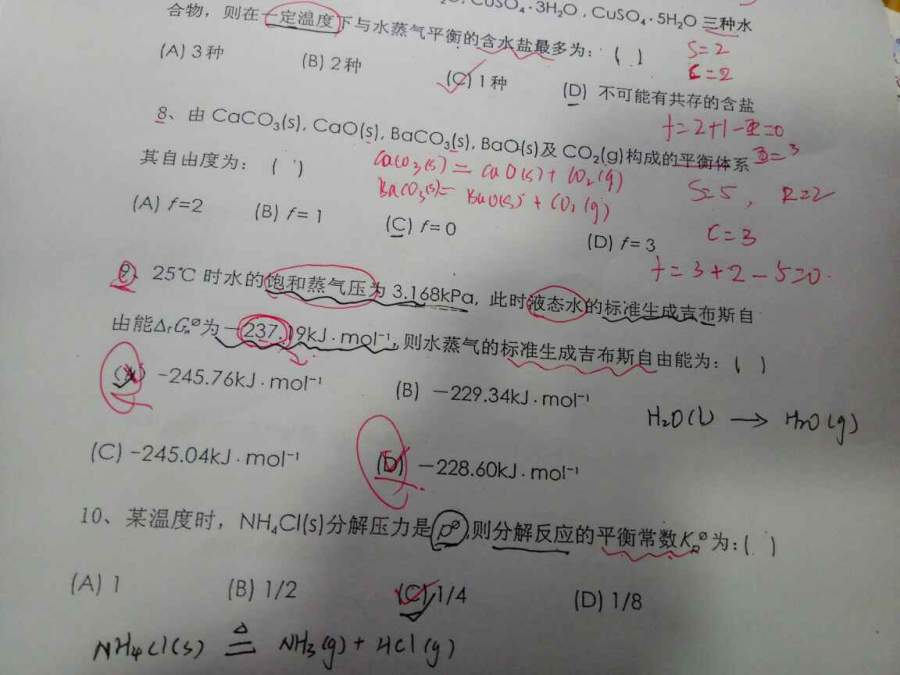 CuSO₄·3H₂O, CuSO₄·5H₂O 三种水
合物，则在一定温度下与水蒸气平衡的含水盐最多为：( )
S=2
C=2
(A) 3种 (B) 2种 (C) 1种 (D) 不可能有共存的含盐
f=2+1-Φ=0
Φ=3
8、由 CaCO₃(s), CaO(s), BaCO₃(s), BaO(s)及 CO₂(g)构成的平衡体系
其自由度为：( )
CaCO₃(s) = CaO(s) + CO₂(g)
BaCO₃(s) = BaO(s) + CO₂(g)
S=5, R=2
(A) f=2 (B) f=1 (C) f=0 (D) f=3
C=3
f=3+2-5=0.
9、25℃ 时水的饱和蒸气压为 3.168kPa, 此时液态水的标准生成吉布斯自
由能ΔfGm⊖为－237.19kJ·mol⁻¹, 则水蒸气的标准生成吉布斯自由能为：( )
(A) -245.76kJ·mol⁻¹ (B) －229.34kJ·mol⁻¹
H₂O(l) → H₂O(g)
(C) -245.04kJ·mol⁻¹ (D) －228.60kJ·mol⁻¹
10、某温度时，NH₄Cl(s)分解压力是p⊖,则分解反应的平衡常数K⊖为：( )
(A) 1 (B) 1/2 (C) 1/4 (D) 1/8
NH₄Cl(s) ≜ NH₃(g) + HCl(g)